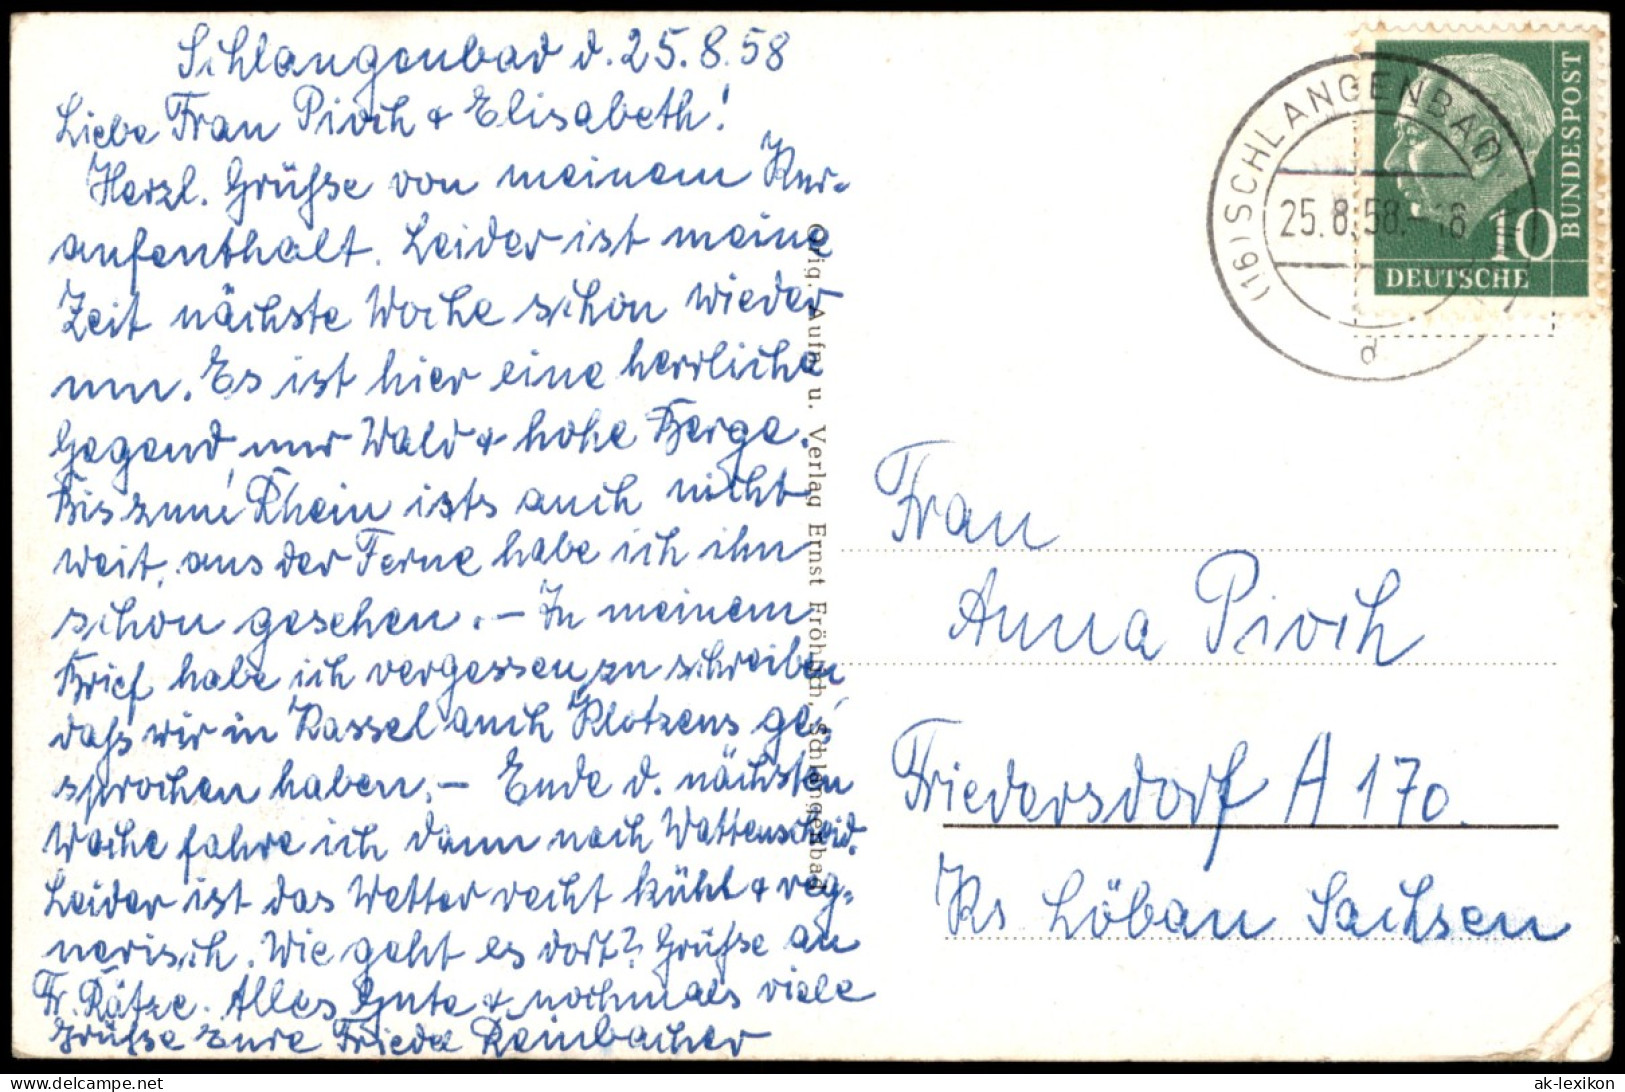 Schlangenbad d. 25.8.58
Liebe Frau Pioch & Elisabeth!
Herzl. Grüßse von meinem Kur-
aufenthalt. Leider ist meine
Zeit nächste Woche schon wieder
um. Es ist hier eine herrliche
Gegend, nur Wald & hohe Berge.
Bis zum Rhein ists auch nicht
weit, aus der Ferne habe ich ihn
schon gesehen. – In meinem
Brief habe ich vergessen zu schreiben
daß wir in Kassel auch Klotzens ge-
sprochen haben. – Ende d. nächsten
Woche fahre ich dann nach Wattenscheid.
Leider ist das Wetter recht kühl & reg-
nerisch. Wie geht es dort? Grüße an
Fr. Rätze. Alles Gute & nochmals viele
Grüße Eure Frieda Reinbacher
Orig. Aufn. u. Verlag Ernst Fröhlich, Schlangenbad
(16) SCHLANGENBAD
25.8.58.-18
d
DEUTSCHE
BUNDESPOST
10
Frau
Anna Pioch
Friedersdorf A 170.
Krs Löbau Sachsen
ak-lexikon